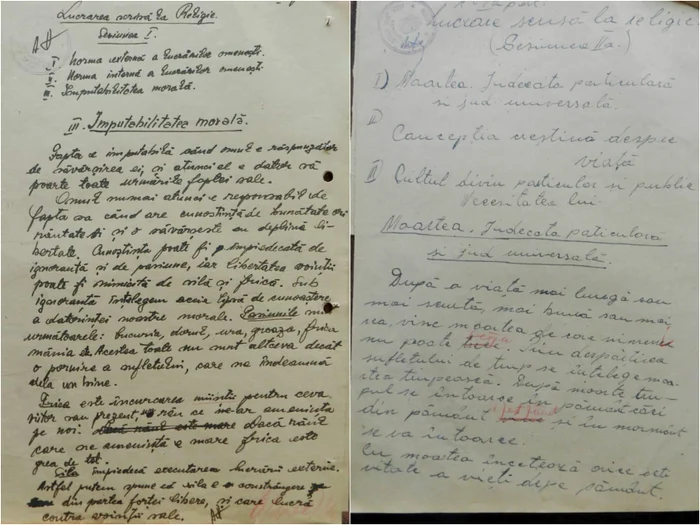 Lucrarea scrisă la Religie.
Sesiunea I.
I. Norma externă a lucrărilor omenești.
II. Norma internă a lucrărilor omenești.
III. Imputabilitatea morală.
III. Imputabilitatea morală.
Fapta e imputabilă când omul e răspunzător
de săvârșirea ei, și atunci el e dator să
poarte toate urmările faptei sale.
Omul numai atunci e responsabil de
fapta sa când are cunoștință de bunătatea ori
răutatea ei și o săvârșește cu deplină li-
bertate. Cunoștința poate fi împiedecată de
ignoranță și de pasiune, iar libertatea voinții
poate fi nimicită de silă și frică. Sub
ignoranță înțelegem acea lipsă de cunoaștere
a datorinței noastre morale. Pasiunile
următoarele: bucuria, dorul, ura, groaza, frica
mânia. Acestea toate nu sunt altceva decât
o pornire a sufletului, care ne îndeamnă
dela un bine.
Frica este încurcarea minții pentru ceva
viitor sau prezent, rău ce ne-ar amenința
pe noi. dacă răul
care ne amenință e mare frica este
grea de tot.
Sila împiedecă executarea lucrării externe.
Astfel putem spune că sila e o constrângere
din partea forței libere, și care lucră
contra voinții sale.
Lucrare scrisă la religie
(Sesiunea II a.)
I) Moartea. Judecata particulară
și jud universală.
II
Concepția creștină despre
viață
III) Cultul divin particular și public
Necesitatea lui.
Moartea. Judecata paticulară
și jud universală.
După o viață mai lungă sau
mai scurtă, mai bună sau mai
rea, vine moartea de care nimeni
nu poate scăpa. Prin despărțirea
sufletului de trup se înțelege moa
rtea trupească. După moarte tru-
pul se întoarce în pământ căci
din pământ și în mormânt
se va întoarce.
Cu moartea încetează orice acti
vitate a vieții depe pământ.